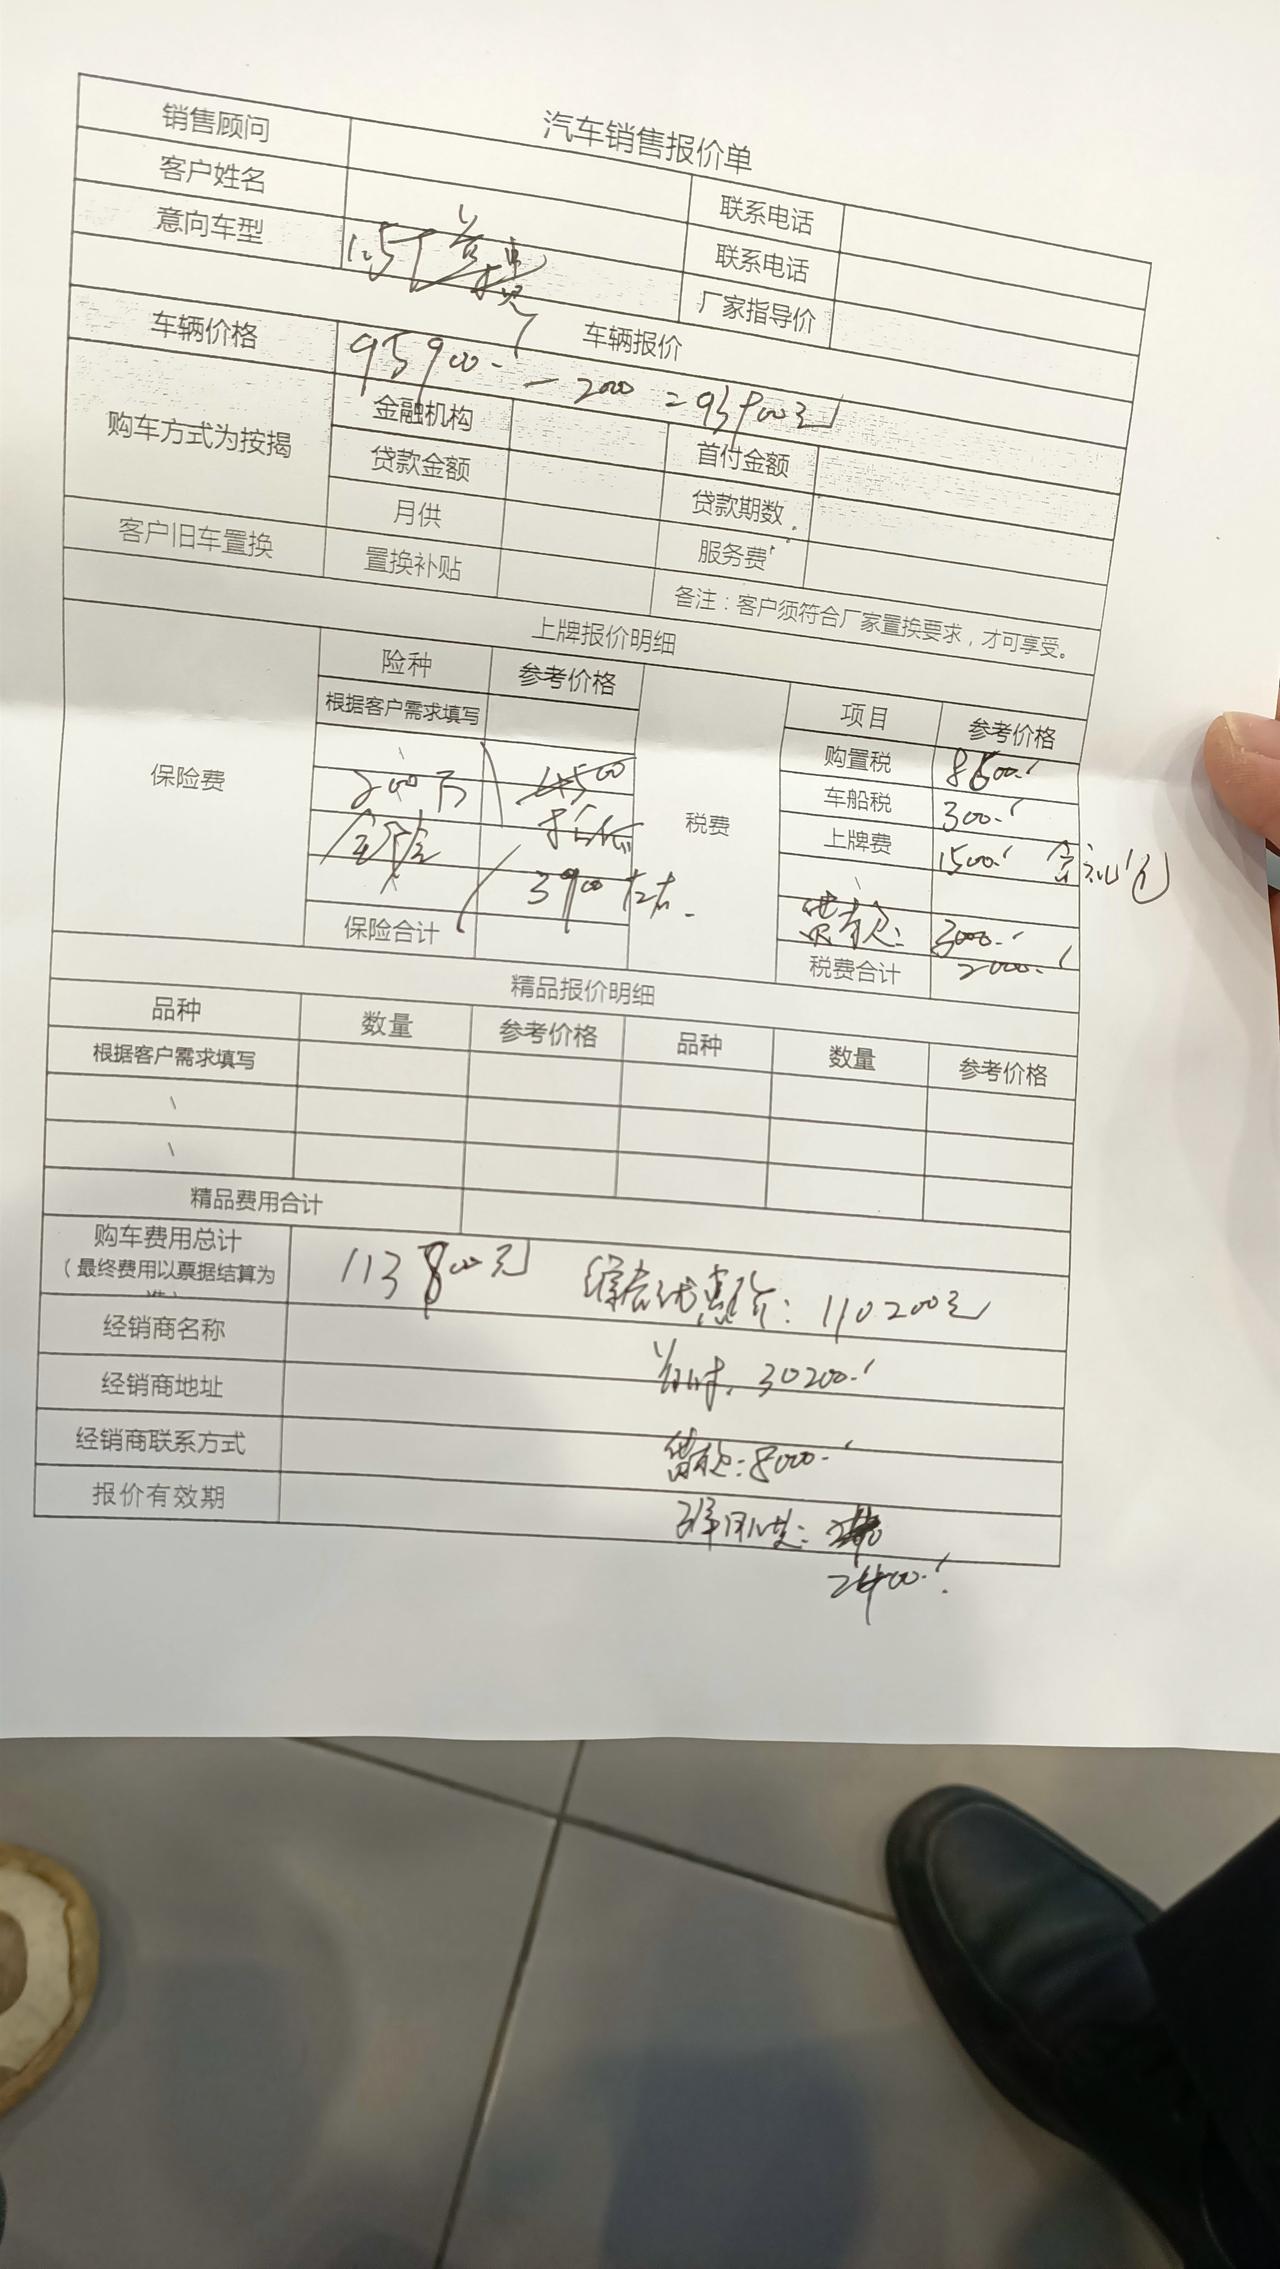 汽车销售报价单
销售顾问 联系电话
客户姓名 联系电话
意向车型 1.5T 厂家指导价
车辆报价
车辆价格 95900.- - 2000 = 93900元
购车方式为按揭 金融机构 首付金额
贷款金额 贷款期数
月供 服务费
客户旧车置换 置换补贴 备注：客户须符合厂家置换要求，才可享受。
上牌报价明细
保险费 险种 参考价格 税费 项目 参考价格
根据客户需求填写 购置税 8500.-
\ 4500 车船税 300.-
200万 折后 上牌费 1500.- 含礼包
全险 3900左右 \
\ 贷款: 3000.-
保险合计 税费合计 2000.-
精品报价明细
品种 数量 参考价格 品种 数量 参考价格
根据客户需求填写
\
\
精品费用合计
购车费用总计 113800元 综合优惠价：110200元
（最终费用以票据结算为
经销商名称 首付：30200.-
经销商地址
经销商联系方式 贷款：8000.-
报价有效期 3年月供：
2400.-